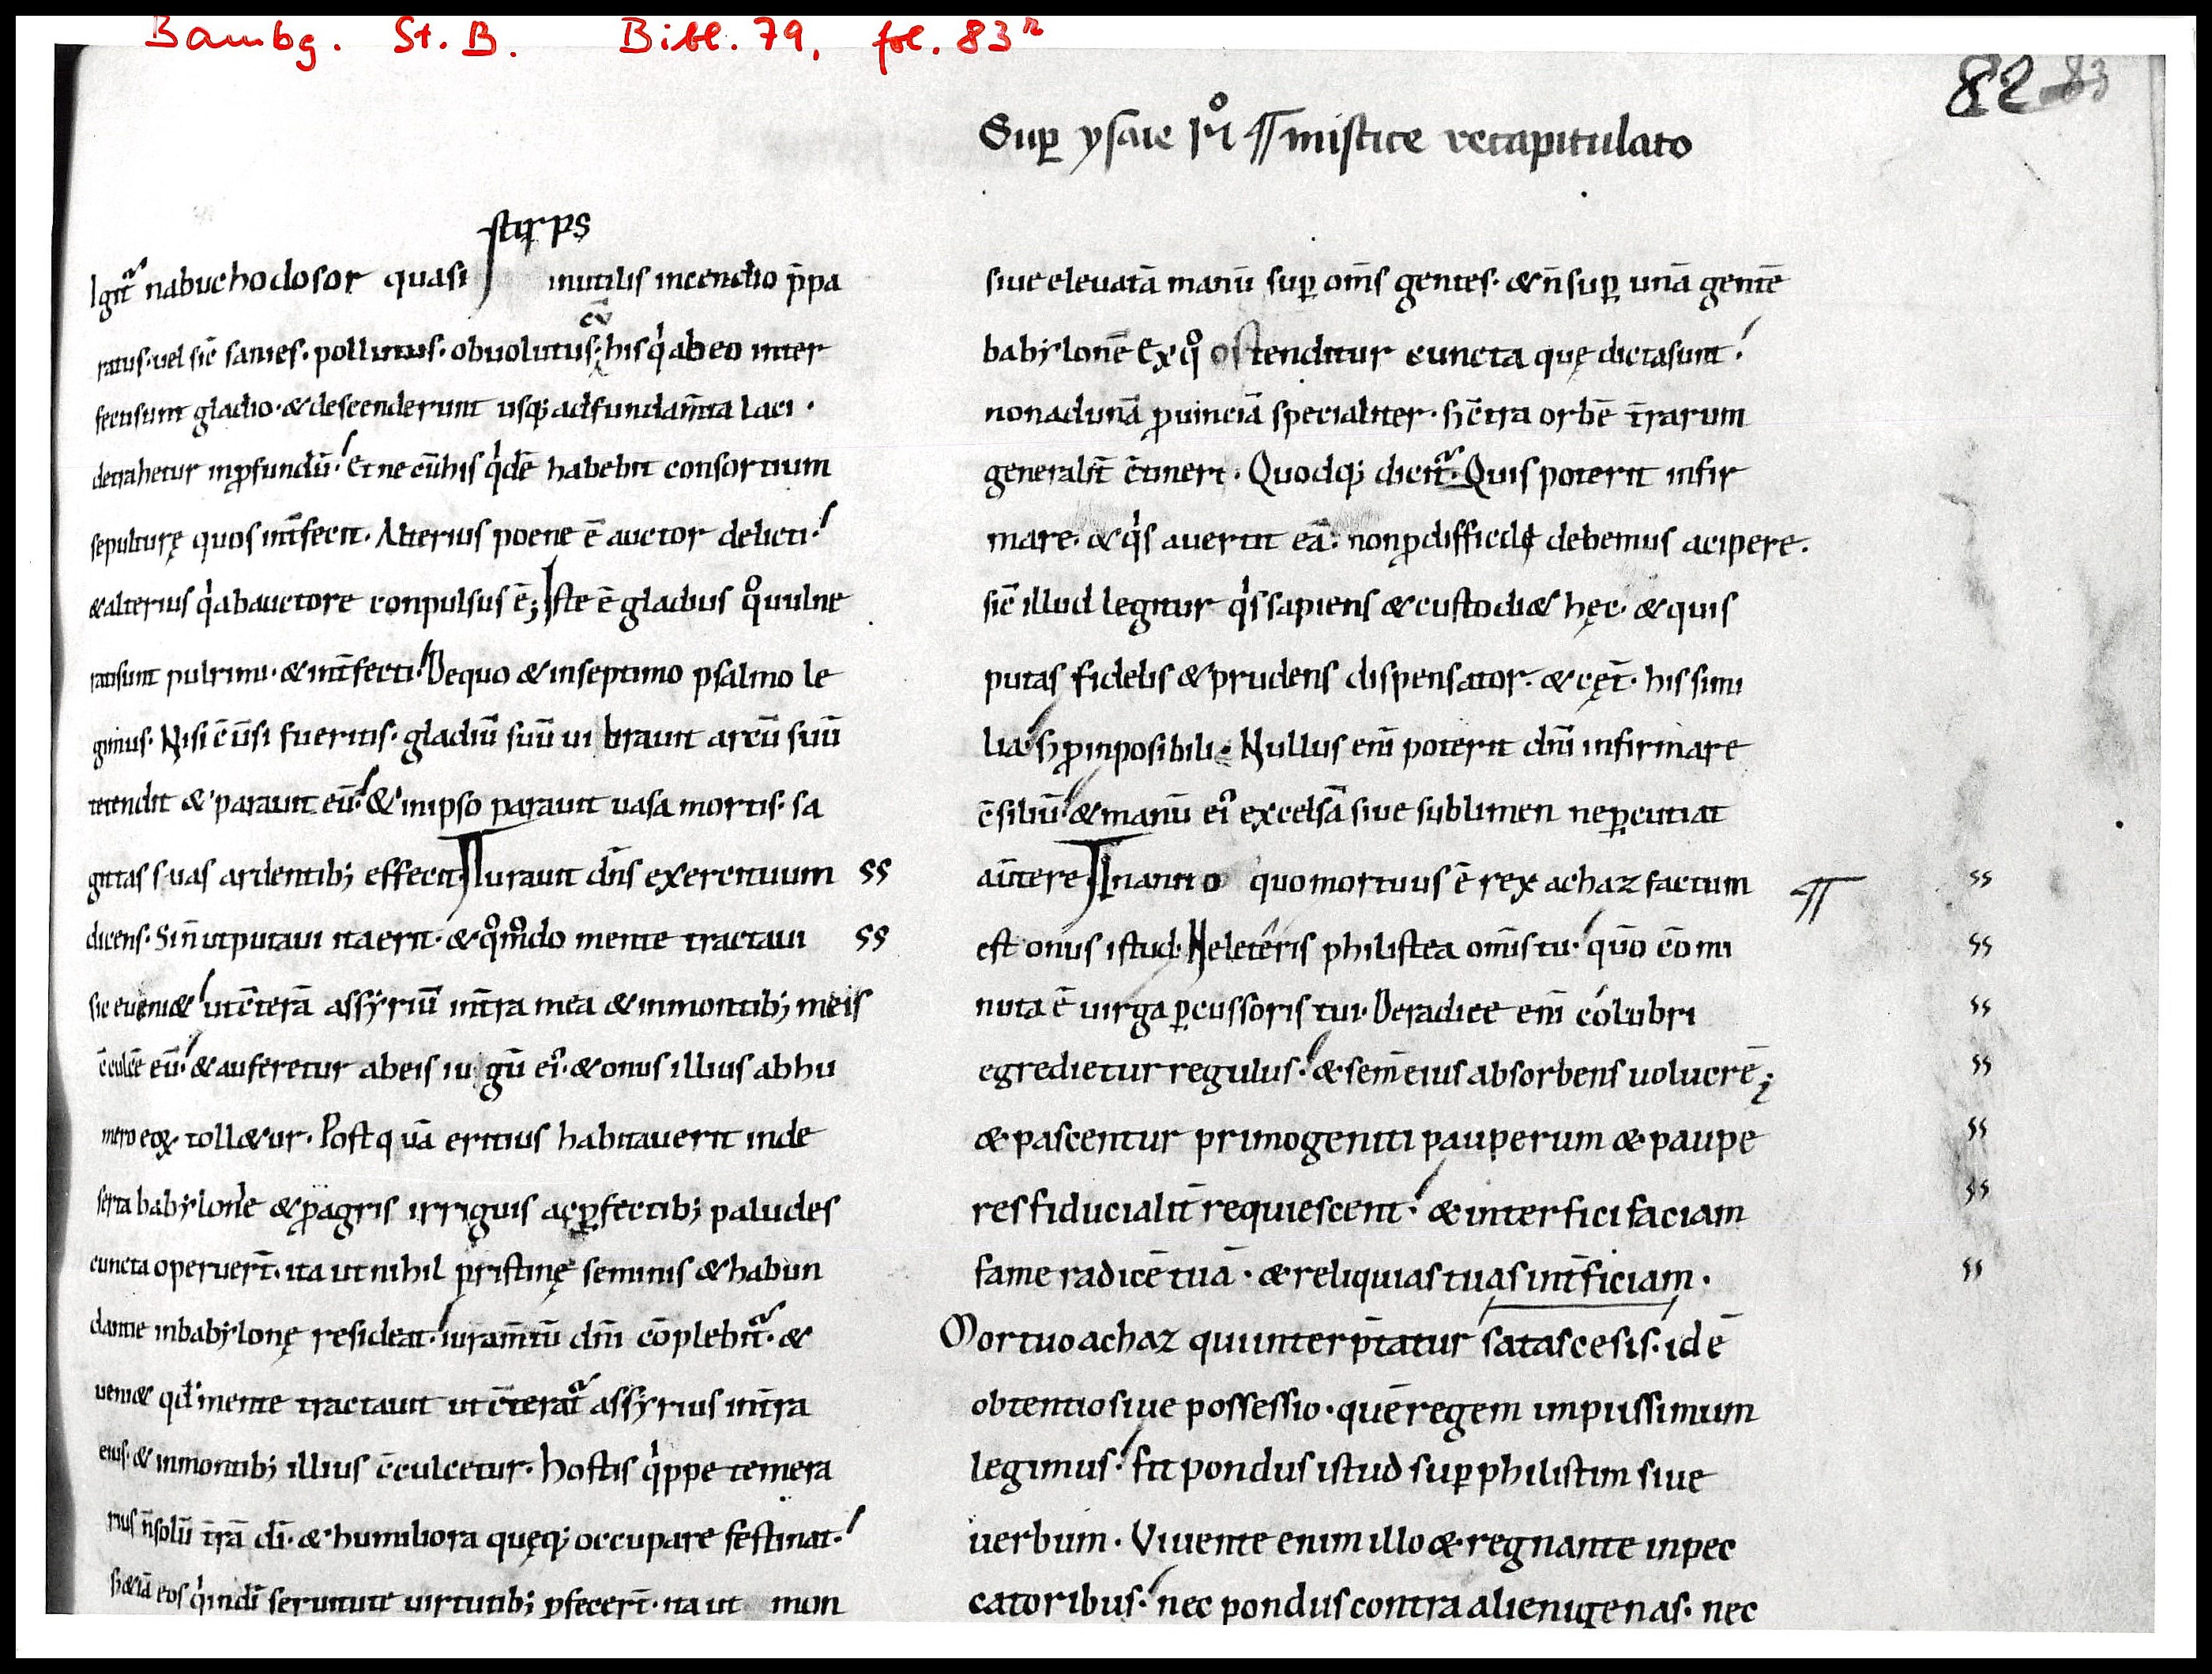 Bambg. St. B. Bibl. 79, fol. 83r
82 83
Suꝑ ysaie
mistice recapitulato
stirps
Igit᷑ nabuchodosor quasi inutilis incendio p̄pa
cū
ratus· uel sic̄ sanies· pollutus· obuolutus· his qͥ ab eo inter
fecti sunt gladio· & descenderunt usq; ad fundam̄ta laci·
detrahetur in ꝓfundū· Et ne cū his qͥdē habebit consortium
sepulturę quos int̄fecit· Alterius poene ē auctor delicti·
& alterius qͥ ab auctore conpulsus ē; Iste ē gladius qͦ uulne
rati sunt pulrimi· & int̄fecti· De quo & in septimo psalmo le
gimus· Nisi c̄ūsi fueritis· gladiū suū ui brauit arcū suū
tetendit & parauit eū· & in ipso parauit uasa mortis· sa
gittas suas ardentib; effecit Iurauit dn̄s exercituum ss
dicens· Si n̄ ut putaui ita erit· & qͦmͦdo mente tractaui ss
sic eueni& ut c̄terā assyriū in t̄ra mea & in montib; meis
c̄culcē eū· & auferetur ab eis iu gū eiꝰ· & onus illius ab hu
mero eoꝝ toll&ur· Postquā eritius habitauerit in de
serta babylone & ꝓ agris irriguis ac ꝑfectib; paludes
cuncta operuer̄t· ita ut nihil pristinę seminis & habun
dantie in babylonę resideat· iuram̄tū dn̄i cōplebit᷑· &
ueni& qd̄ mente tractauit ut c̄terat᷑ assyrius in t̄ra
eius· & in montib; illius c̄culcetur· hostis qͥppe temera
rius n̄ solū t̄rā dī· & humiliora quęq; occupare festinat·
s; & iā eos qͥ in dī seruitute uirtutib; ꝓfecer̄t· ita ut mon
siue eleuatā manū suꝑ om̄s gentes· & n̄ suꝑ unā gentē
babylonē Ex qͦ ostenditur cuncta quę dicta sunt·
non ad unā ꝓuinciā specialiter· s; c̄tra orbē t̄rarum
generalit̄ c̄tineri· Quodq; dicit᷑· Quis poterit infir
mare· & qͥs auertit eā· non ꝓ difficile debemus acipere·
sic̄ illud legitur qͥs sapiens & custodi& hęc· & quis
putas fidelis & prudens dispensator· & cęt̄· his simi
lia s; ꝓ inposibili· Nullus eni̅ poterit dn̄i infirmare
c̄siliū· & manū eiꝰ excelsā siue sublimen ne ꝑcutiat
aūtere In anno quo mortuus ē rex achaz factum ss
est onus istud· Ne leteris philistea om̄is tu· quō cōmi ss
nuta ē uirga ꝑcussoris tui· De radice eni̅ colubri ss
egredietur regulus· & sem̄ eius absorbens uolucrē; ss
& pascentur primogeniti pauperum & paupe ss
res fiducialit̄ requiescent· & interfici faciam ss
fame radicē tuā· & reliquias tuas int̄ficiam· ss
Mortuo achaz qui interp̄tatur satascesis· id ē
obtentio siue possessio· quē regem impiissimum
legimus· fit pondus istud suꝑ philistim siue
uerbum· Viuente enim illo & regnante in pec
catoribus· nec pondus contra alienigenas· nec